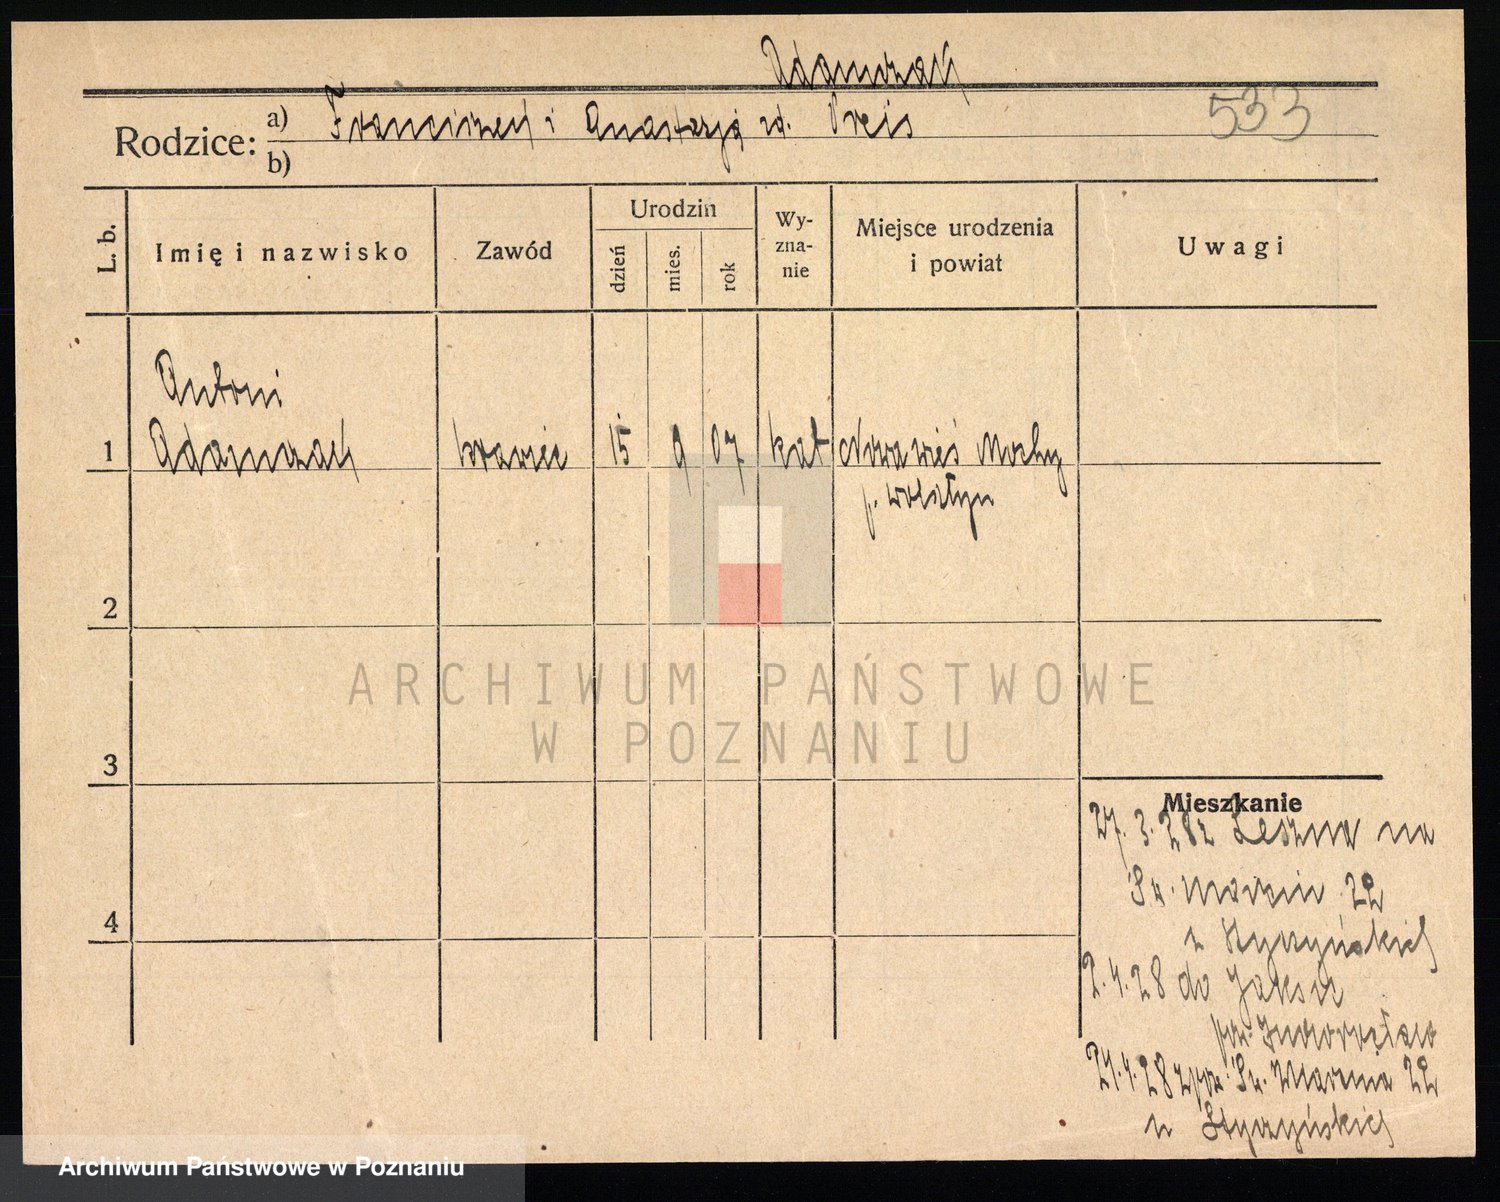 Adamczak
533
Rodzice: a) Franciszek i Anastazja rd. Preis
b)
L. b.
Imię i nazwisko
Zawód
Urodzin
dzień
mies.
rok
Wy-
zna-
nie
Miejsce urodzenia
i powiat
Uwagi
Antoni
1 Adamczak krawiec 15 9 07 kat Nowawieś Mochy
p. Wolsztyn
2
3
4
Mieszkanie
27. 3. 28 z Leszna na
Św. Marcin 22
u Styczyńskich
2. 4. 28 do Jaksic
pow. Inowrocław
21. 4. 28 Św. Marcin 22
u Styczyńskich
ARCHIWUM PAŃSTWOWE
W POZNANIU
Archiwum Państwowe w Poznaniu